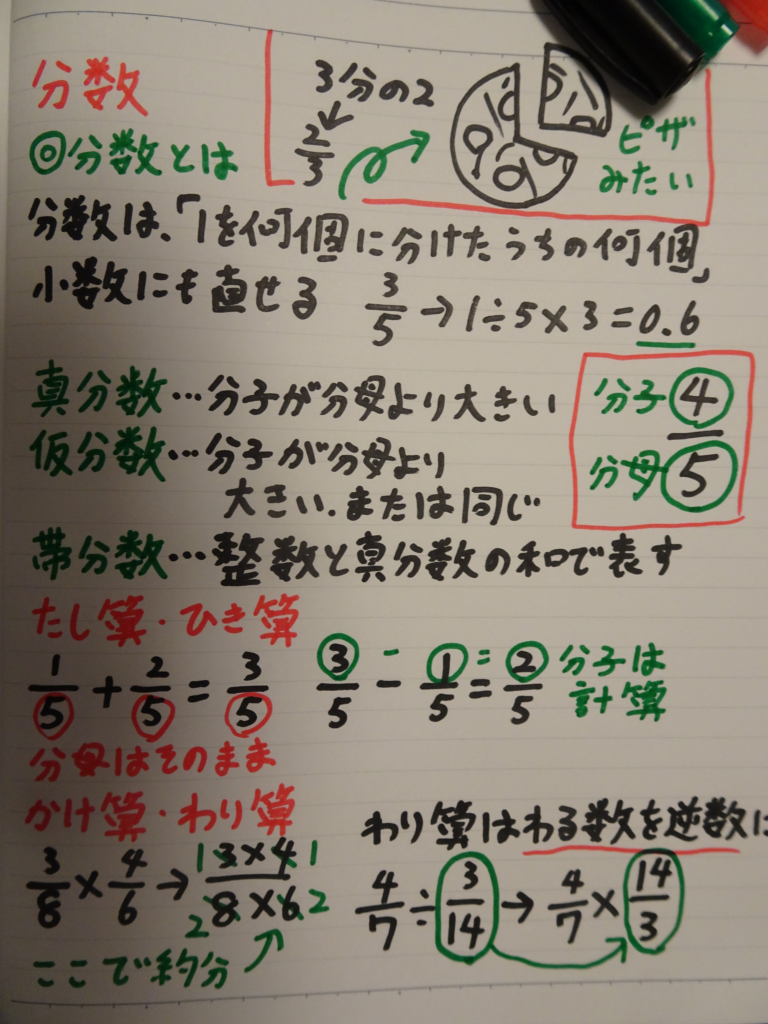 分数
3分の2
2/3
ピザ
みたい
◎分数とは
分数は、「1を何個に分けたうちの何個」
小数にも直せる 3/5 → 1÷5×3=0.6
真分数…分子が分母より大きい
仮分数…分子が分母より
大きい.または同じ
分子 4
分母 5
帯分数…整数と真分数の和で表す
たし算・ひき算
1/5 + 2/5 = 3/5
3/5 - 1/5 = 2/5
- =
分子は
計算
分母はそのまま
かけ算・わり算
3/8 × 4/6 → 3×4/8×6
1 1
2 2
ここで約分
わり算はわる数を逆数に
4/7 ÷ 3/14 → 4/7 × 14/3